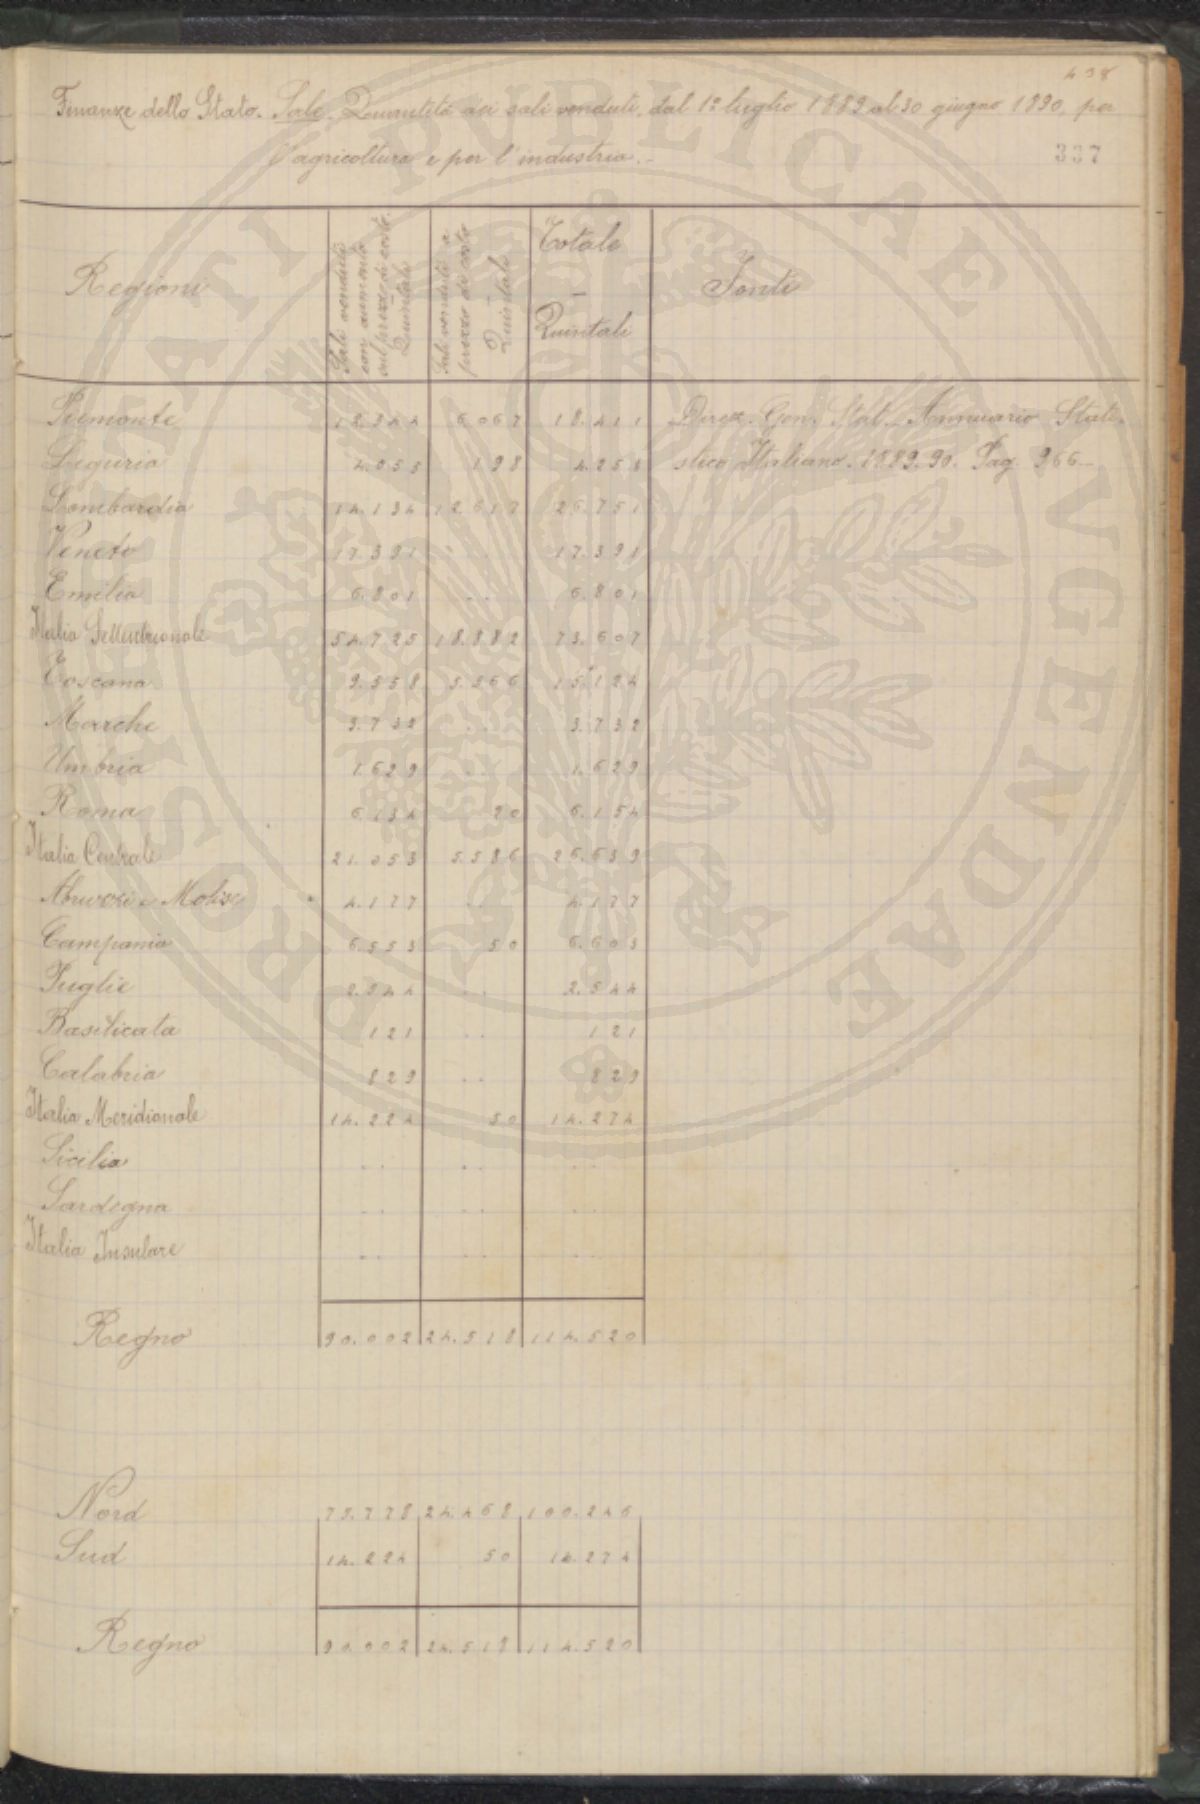 438
Finanze dello Stato. Sale. Quantità dei sali venduti, dal 1º luglio 1889 al 30 giugno 1890, per
l'agricoltura e per l'industria.-
337
Regioni
Sali venduti
con aumento
sul prezzo di costo.
Quintali
Sali venduti a
prezzo di costo
-
Quintali
Totale
-
Quintali
Fonti
Piemonte 12.344 6.067 18.411 Direz. Gen. Stat. Annuario Stati-
Liguria 4.055 198 4.253 stico Italiano. 1889.90. Pag. 966-
Lombardia 14.134 12.617 26.751
Veneto 17.391 .. 17.391
Emilia 6.801 .. 6.801
Italia Settentrionale 54.725 18.882 73.607
Toscana 9.558 5.566 15.124
Marche 3.732 .. 3.732
Umbria 1.629 .. 1.629
Roma 6.134 20 6.154
Italia Centrale 21.053 5.586 26.639
Abruzzi e Molise 4.177 .. 4.177
Campania 6.553 50 6.603
Puglie 2.544 .. 2.544
Basilicata 121 .. 121
Calabria 829 .. 829
Italia Meridionale 14.224 50 14.274
Sicilia .. .. ..
Sardegna .. .. ..
Italia Insulare .. .. ..
Regno 90.002 24.518 114.520
Nord 75.778 24.468 100.246
Sud 14.224 50 14.274
Regno 90.002 24.518 114.520
PROSPERITATI PUBLICAE AVGENDAE